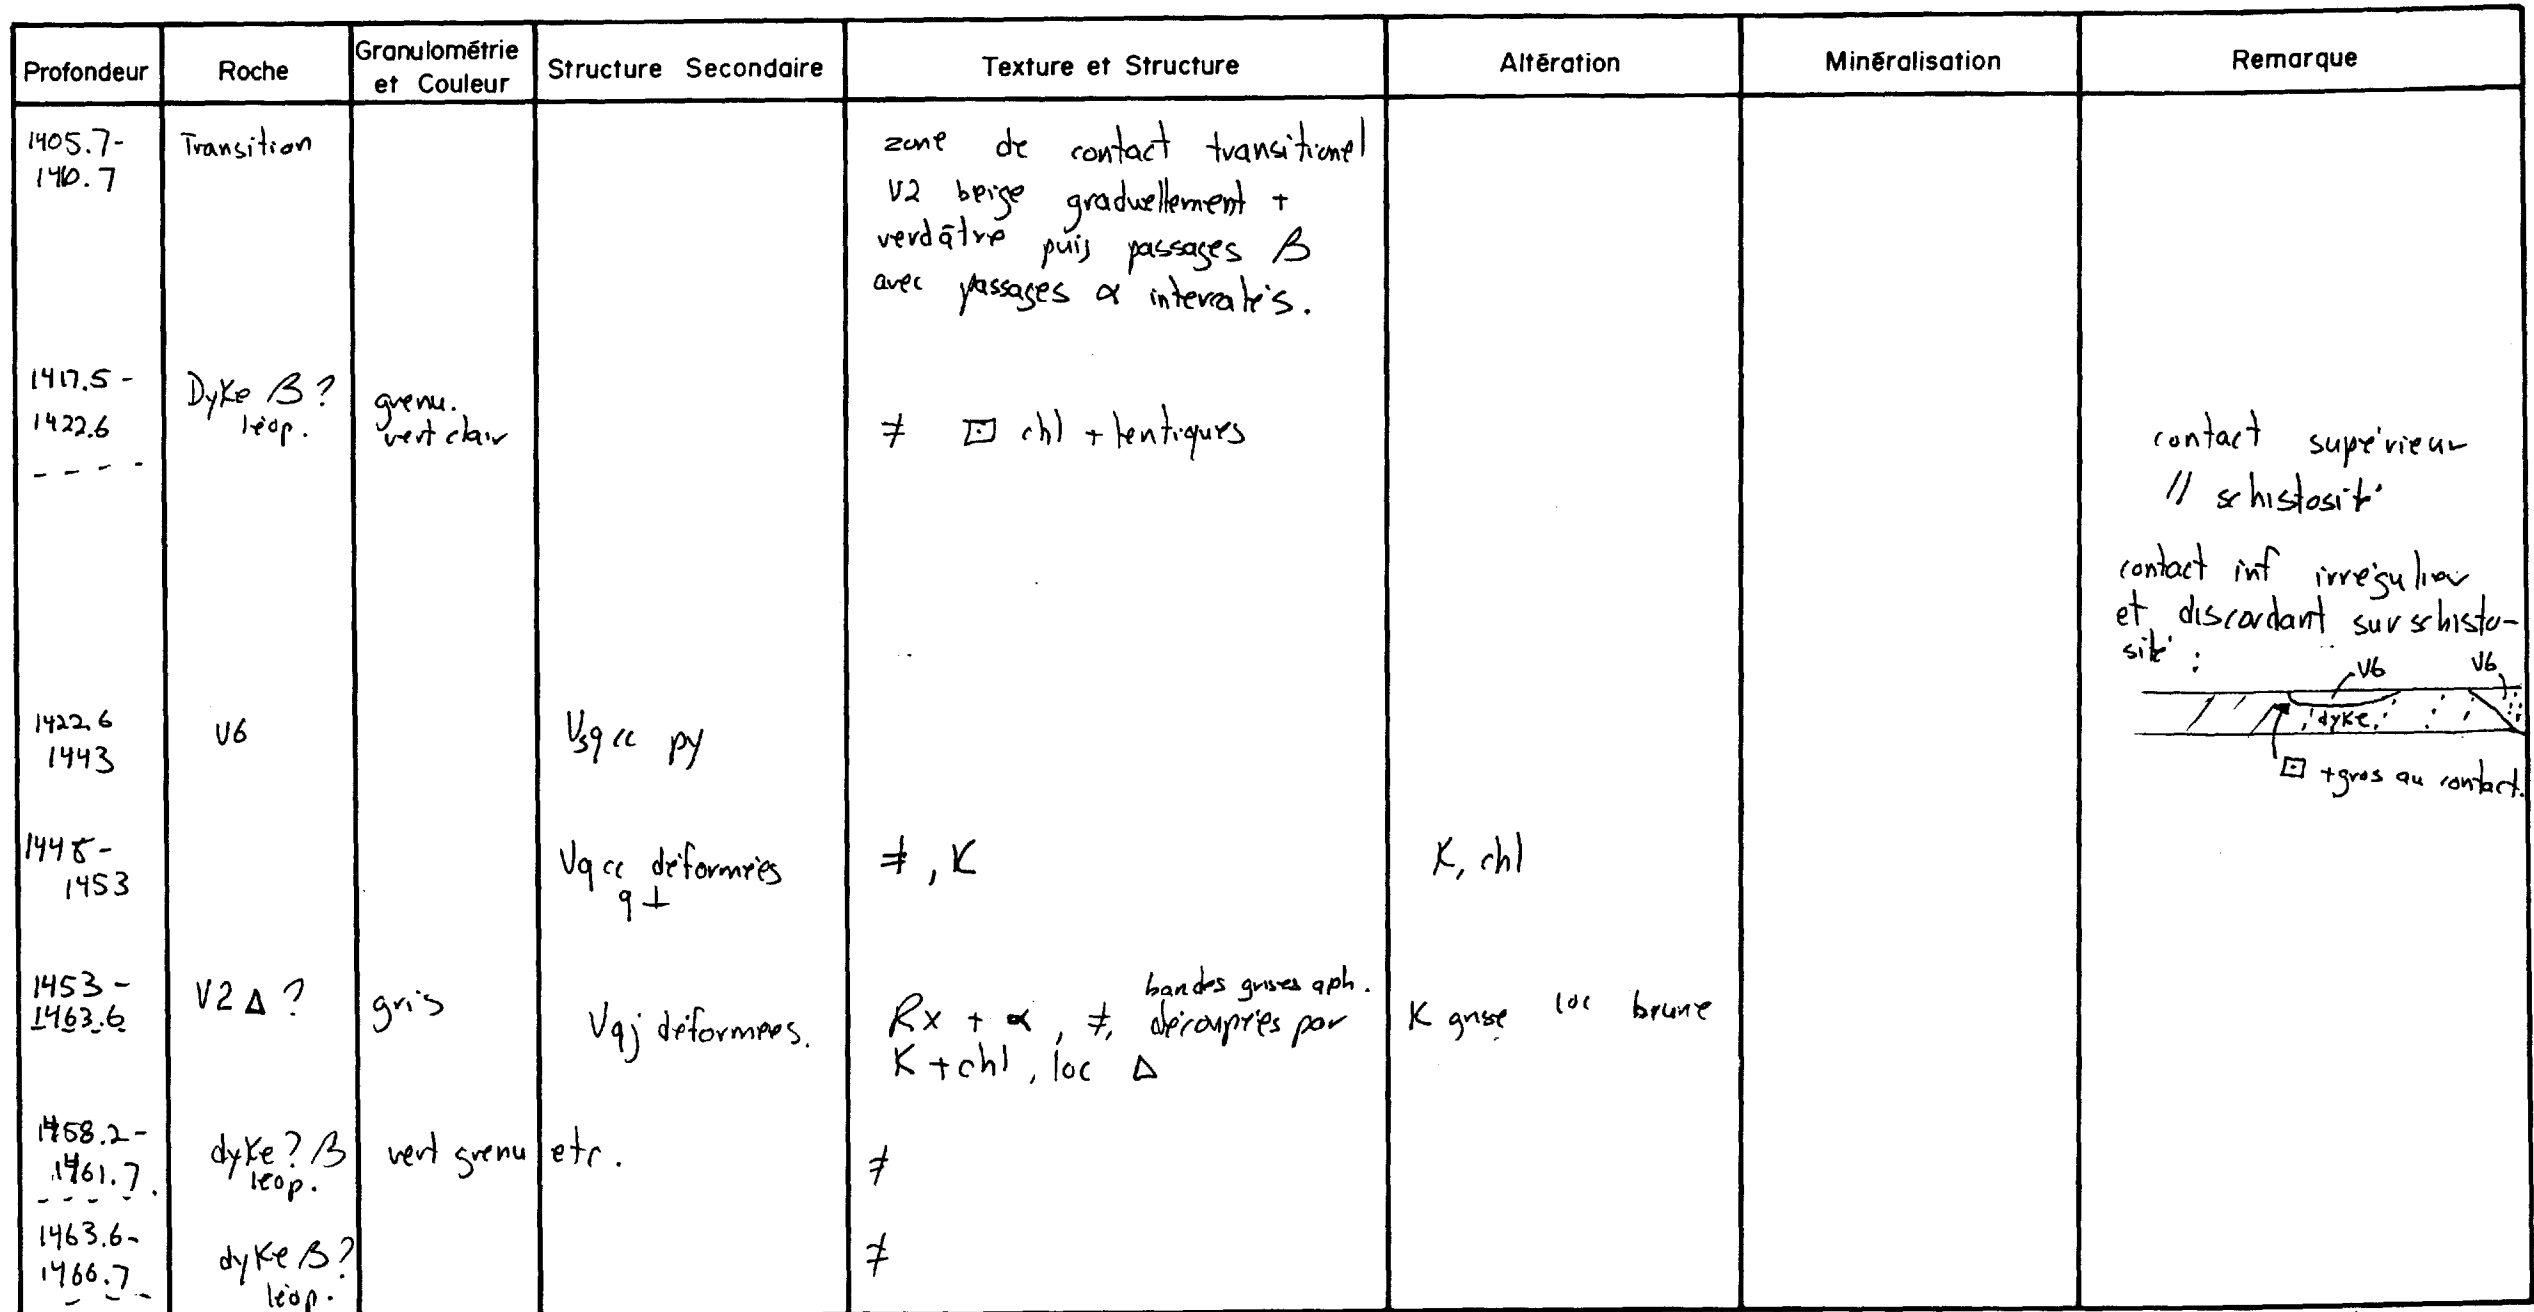 Profondeur Roche Granulométrie et Couleur Structure Secondaire Texture et Structure Altération Minéralisation Remarque
1405.7- Transition zone de contact transitionel
1410.7 V2 beige graduellement +
verdâtre puis passages β
avec passages α intercalés.
1417.5 - Dyke β ? grenu.
1422.6 léop. vert clair ≠ ⊡ chl + lentiques
contact supérieur
// schistosité
contact inf irrégulier
et discordant sur schisto-
sité :
V6 V6
dyke
⊡ + gros au contact.
1422.6 V6 Vsqcc py
1443
1448- Vqcc déformées ≠, K K, chl
1453 q ⊥
1453 - V2 Δ ? gris Vqj déformées. Rx + α, ≠, bandes grises aph. K grise loc brune
1463.6 découpées par
K + chl, loc Δ
1458.2- dyke? β vert grenu etc. ≠
1461.7. léop.
1463.6- dyke β? ≠
1466.7 léop.